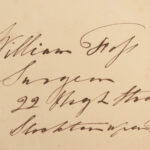 William Foss
Surgeon
22 High Stre
Stockton upon